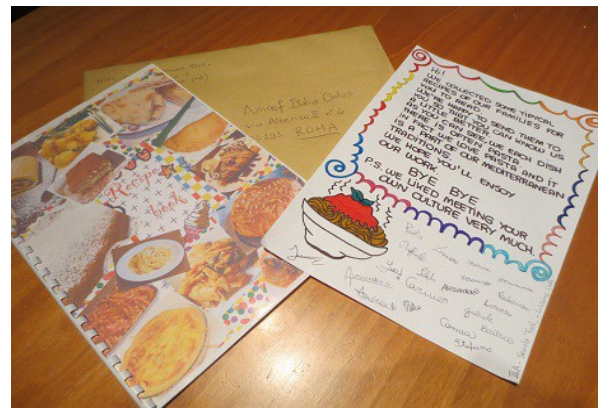 Recipe
book
Italia Onlus
via Alberico II n° 4
ROMA
HI!
WE COLLECTED SOME TIPYCAL
RECIPES OF OUR FAMILIES FOR
YOU TO READ.
WE'RE HAPPY TO SEND THEM TO
YOU SO THAT YOU CAN KNOW US
A LITTLE BETTER.
AS YOU CAN SEE, EACH DISH
THERE IS OFTEN PASTA
IN FACT WE LOVE PASTA AND IT
IS A PART OF OUR MEDITERRANEAN
TRADITIONS.
WE HOPE YOU'LL ENJOY
OUR WORK.
BYE BYE
P.S. WE LIKED MEETING YOUR
OWN CULTURE VERY MUCH.
Carmen
Alessandro
Lorenzo
Andrea
Gabriele
Camilla
Beatrice
Stefano